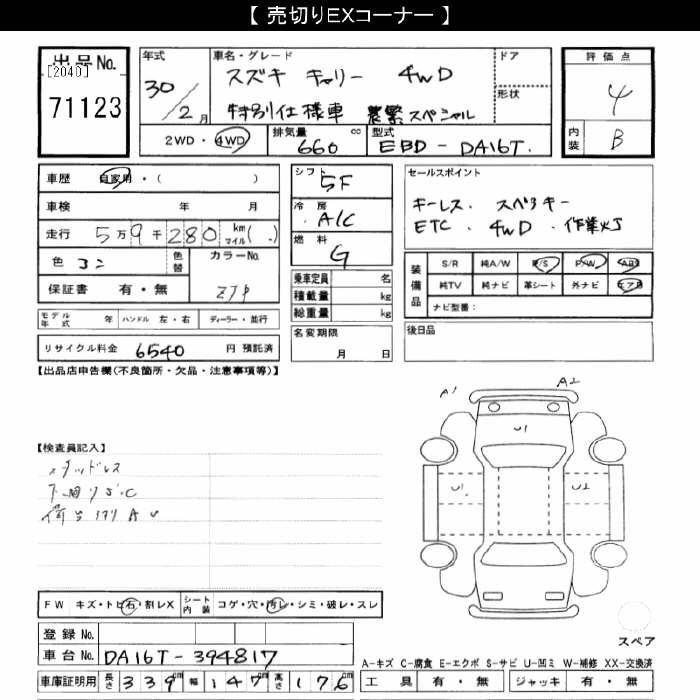 【 売切りEXコーナー 】
出品No.
[2040]
71123
年式
30/2月
車名・グレード
スズキ キャリー 4WD
特別仕様車 農繁スペシャル
ドア
形状
評価点
4
内装
B
2WD・4WD
排気量
660 cc
型式
EBD-DA16T.
車歴 自家用・( )
車検 年 月
走行 5万9千280 km マイル( )
色 コン 色替 カラーNo.
ZJP
保証書 有・無
モデル年式 年 ハンドル 左・右 ディーラー・並行
リサイクル料金 6540 円 預託済
シフト
5F
冷房
A/C
燃料
G
乗車定員 名
積載量 kg
総重量 kg
名変期限
月 日
セールスポイント
キーレス. スペアキー
ETC. 4WD. 作業灯
装備品
S/R 純A/W P/S P/W ABS
純TV 純ナビ 革シート 外ナビ エアB
ナビ型番:
後日品
【出品店申告欄(不良箇所・欠品・注意事項等)】
【検査員記入】
下回りS.C
荷台 A U
A1
A2
U1
U1
U2
スペア
FW キズ・トビ石・割レX シート内装 コゲ・穴・汚レ・シミ・破レ・スレ
登録No.
車台No. DA16T-394817
車庫証明用 長さ 339cm 幅 147cm 高さ 176cm
A-キズ C-腐食 E-エクボ S-サビ U-凹ミ W-補修 XX-交換済
工具 有・無 ジャッキ 有・無